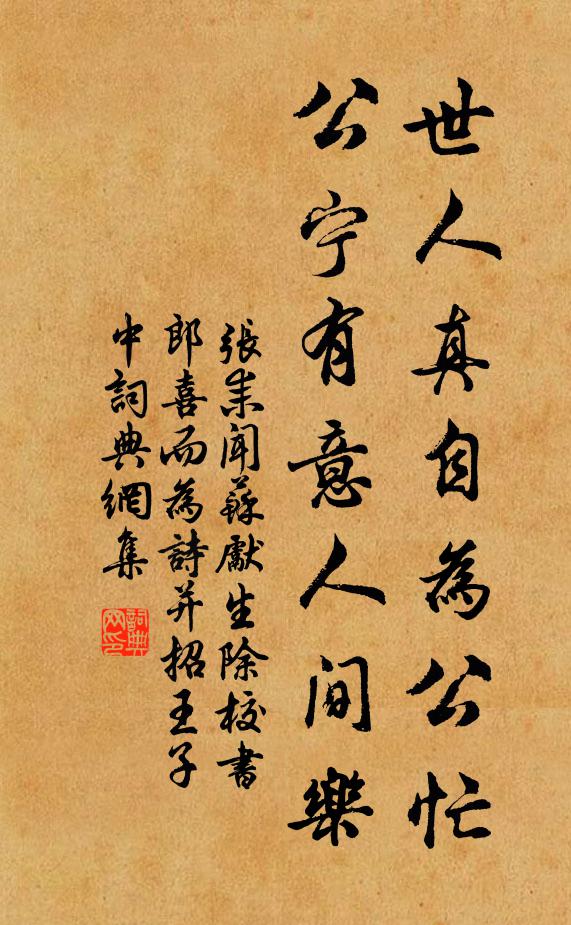 世人真自為公忙
公宁有意人間樂
張耒聞蘇獻生除校書
郎喜而為詩并招王子
中詞典網集
詞典网印